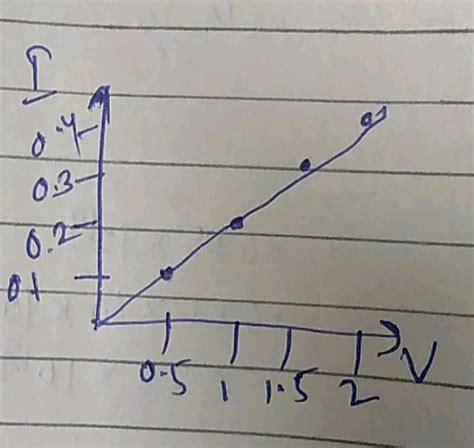 I
0.4
0.3
0.2
0.1
0.5 1 1.5 2 V